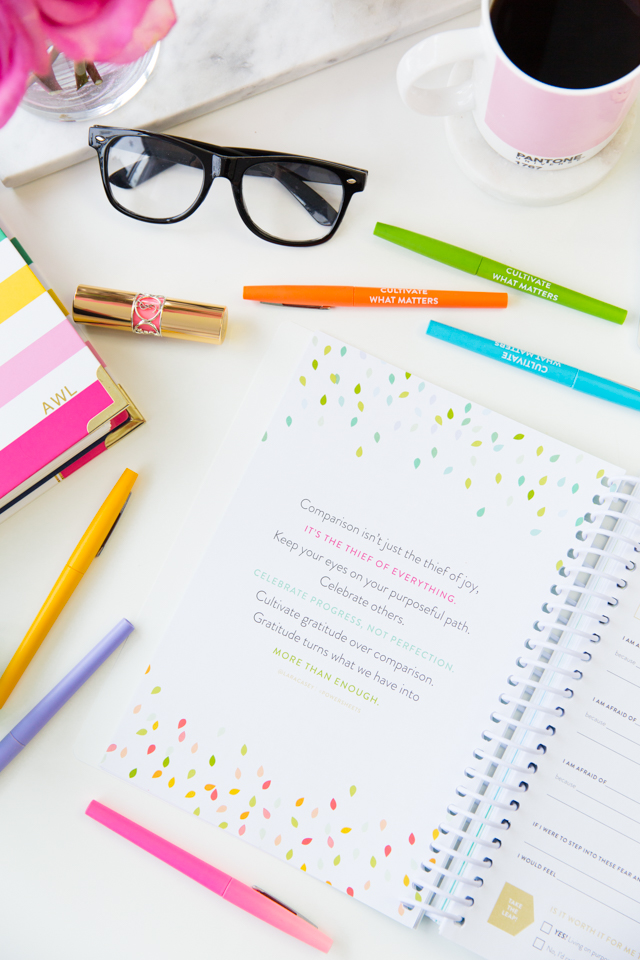 PANTONE
1767
CULTIVATE
WHAT MATTERS
CULTIVATE
WHAT MATTERS
CULTIVATE
WHAT MATTERS
AWL
Comparison isn't just the thief of joy,
IT'S THE THIEF OF EVERYTHING.
Keep your eyes on your purposeful path.
Celebrate others.
CELEBRATE PROGRESS, NOT PERFECTION
Cultivate gratitude over comparison.
Gratitude turns what we have into
MORE THAN ENOUGH.
I AM A
because
I AM AFRAID OF
because
I AM AFRAID OF
because
IF I WERE TO STEP INTO THESE FEAR AN
I WOULD FEEL
TAKE
THE
LEAP!
IS IT WORTH IT FOR ME
YES! Living on purpose
NO